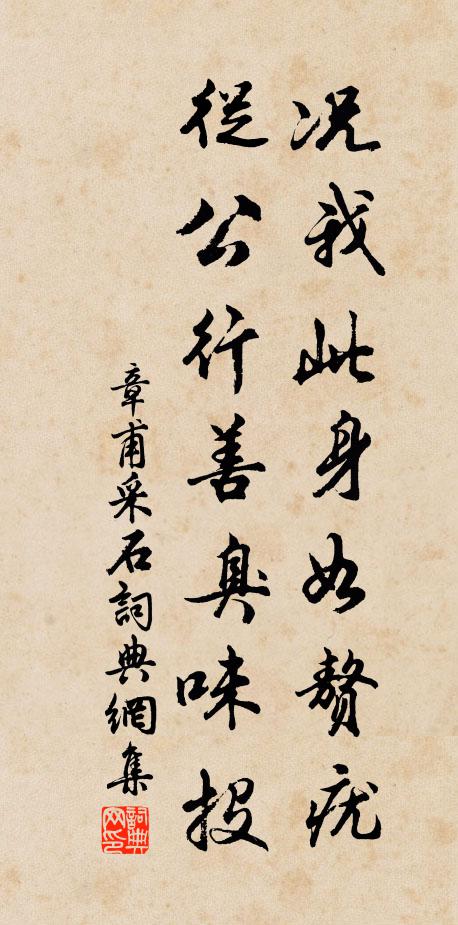 况我此身如贅疣
從公行善臭味投
章甫采石詞典網集
詞典網印